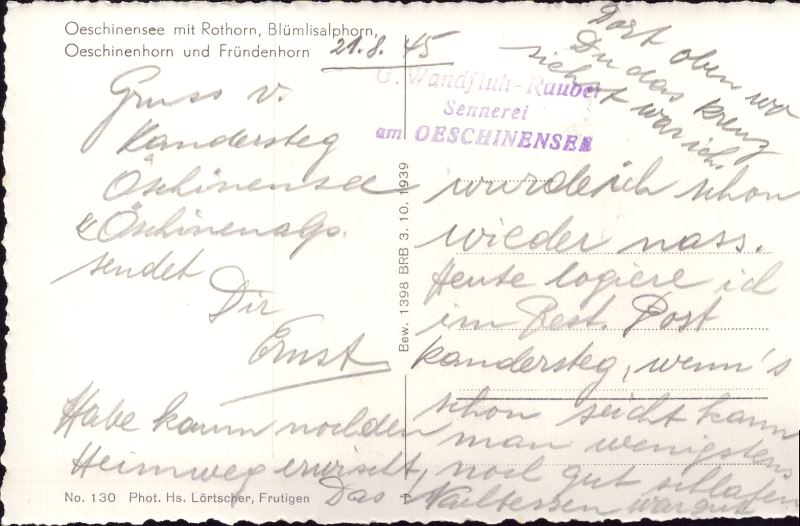 Oeschinensee mit Rothorn, Blümlisalphorn,
Oeschinenhorn und Fründenhorn
21.8.45
G. Wandfluh-Rauber
Sennerei
am OESCHINENSEE
Dort oben wo
Du das Kreuz
siehst war ich.
Gruss v.
Kandersteg
Öschinensee
& Öschinenalp.
sendet
Dir
Ernst
Habe kaum noch den
Heimweg erwischt,
wurde ich schon
wieder nass.
Heute logiere ich
im Rest. Post
Kandersteg, wenn's
schon seicht kann
man wenigstens
noch gut schlafen
Das Nachtessen war gut
Bew. 1398 BRB 3. 10. 1939
No. 130 Phot. Hs. Lörtscher, Frutigen